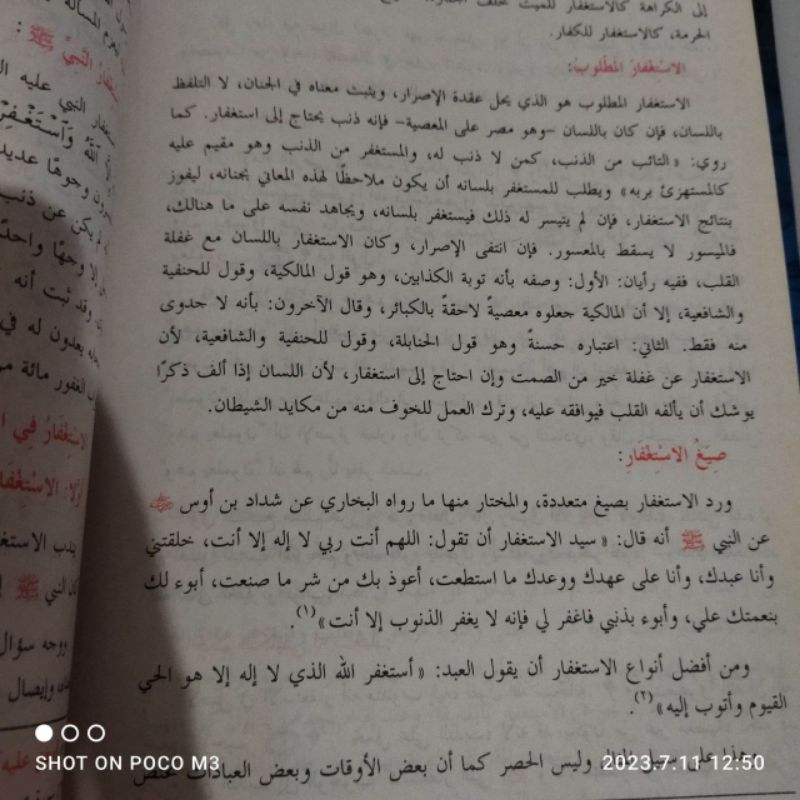 إلى الكراهة كالاستغفار للميت خلف
الحرمة، كالاستغفار للكفار.
الاسْتغْفارُ المَطْلوبُ:
الاستغفار المطلوب هو الذي يحل عقدة الإصرار، ويثبت معناه في الجنان، لا التلفظ
باللسان، فإن كان باللسان -وهو مصر على المعصية- فإنه ذنب يحتاج إلى استغفار. كما
روي: «التائب من الذنب، كمن لا ذنب له، والمستغفر من الذنب وهو مقيم عليه
كالمستهزئ بربه» ويطلب للمستغفر بلسانه أن يكون ملاحظًا لهذه المعاني بجنانه، ليفوز
بنتائج الاستغفار، فإن لم يتيسر له ذلك فيستغفر بلسانه، ويجاهد نفسه على ما هنالك،
فالميسور لا يسقط بالمعسور. فإن انتفى الإصرار، وكان الاستغفار باللسان مع غفلة
القلب، ففيه رأيان: الأول: وصفه بأنه توبة الكذابين، وهو قول المالكية، وقول للحنفية
والشافعية، إلا أن المالكية جعلوه معصيةً لاحقةً بالكبائر، وقال الآخرون: بأنه لا جدوى
منه فقط. الثاني: اعتباره حسنةً وهو قول الحنابلة، وقول للحنفية والشافعية، لأن
الاستغفار عن غفلة خير من الصمت وإن احتاج إلى استغفار، لأن اللسان إذا ألف ذكرًا
يوشك أن يألفه القلب فيوافقه عليه، وترك العمل للخوف منه من مكايد الشيطان.
صِيَغُ الاسْتِغْفَارِ:
ورد الاستغفار بصيغ متعددة، والمختار منها ما رواه البخاري عن شداد بن أوس
عن النبي ﷺ أنه قال: «سيد الاستغفار أن تقول: اللهم أنت ربي لا إله إلا أنت، خلقتني
وأنا عبدك، وأنا على عهدك ووعدك ما استطعت، أعوذ بك من شر ما صنعت، أبوء لك
بنعمتك علي، وأبوء بذنبي فاغفر لي فإنه لا يغفر الذنوب إلا أنت»(١).
ومن أفضل أنواع الاستغفار أن يقول العبد: «أستغفر الله الذي لا إله إلا هو الحي
القيوم وأتوب إليه»(٢).
وهذا على سبيل المثال وليس الحصر كما أن بعض الأوقات وبعض العبادات تختص
النبي ﷺ:
النبي عليه
اللَّهَ وَاسْتَغْفِرْ
وجوهًا عديد
يكن عن ذنب
إلا وجهًا واحدًا
وقد ثبت أنه
يعدون له في
الغفور مائة مر
الاسْتِغْفَارُ فِي
أولًا: الاسْتِغْفَا
يندب الاستغ
النبي ﷺ
ووجه سؤال
وإيصال
SHOT ON POCO M3
2023.7.11 12:50